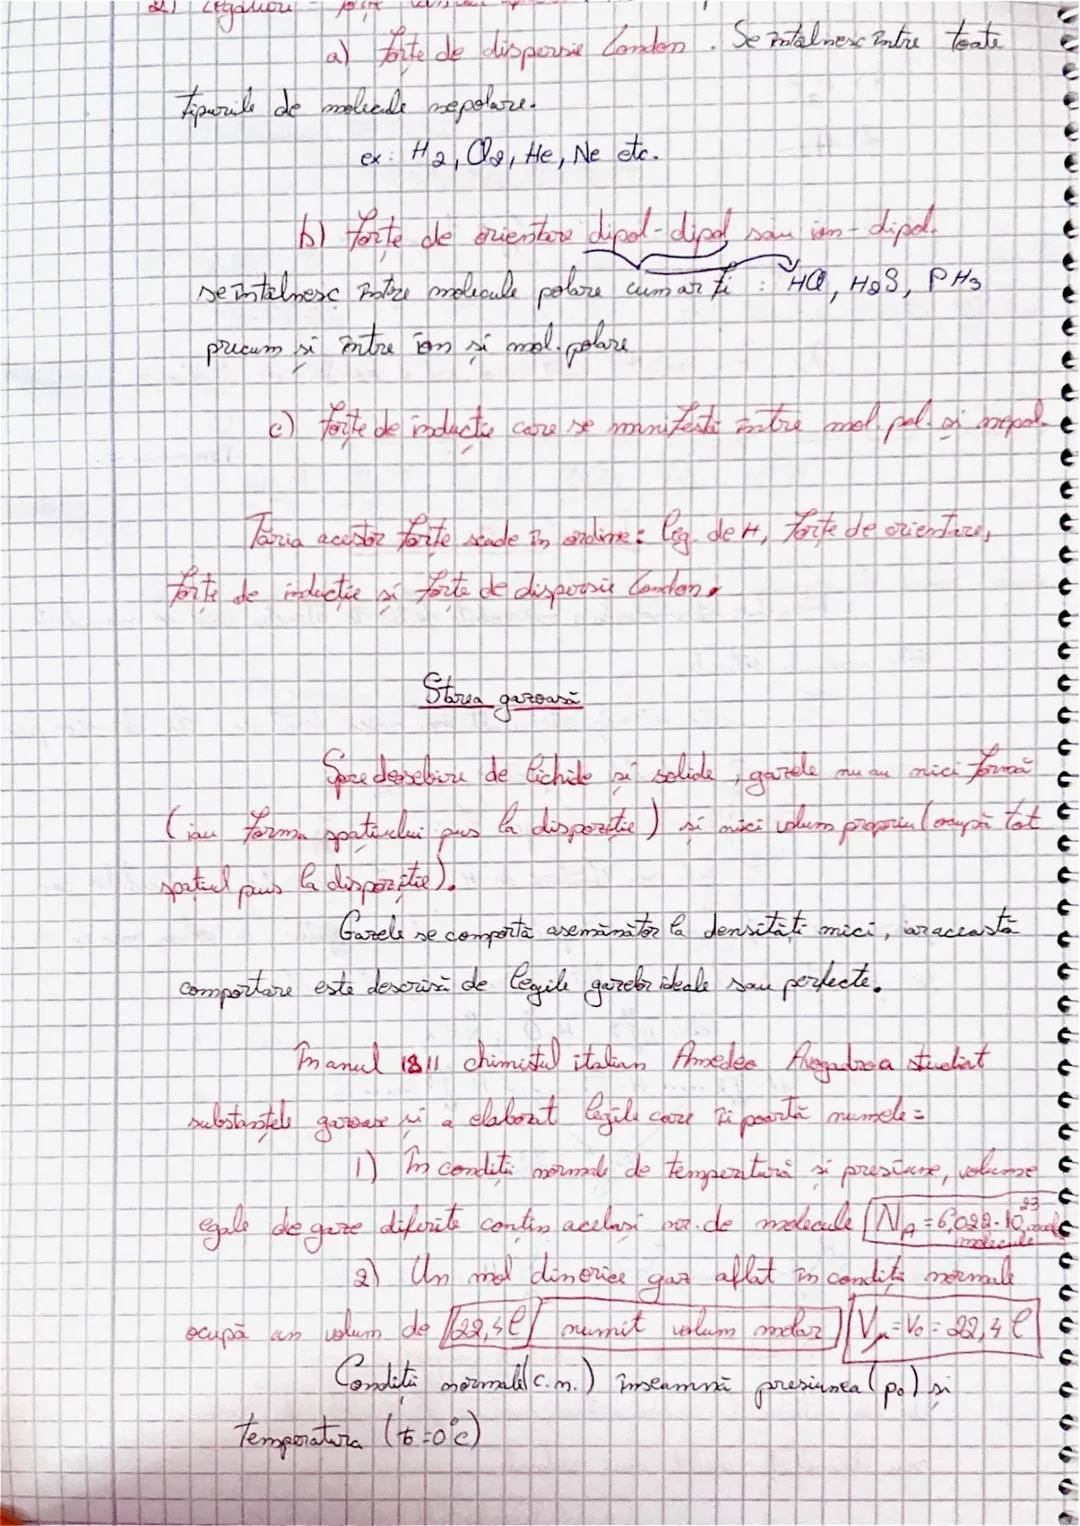 2) Legături
a) Forțe de dispersie London. Se întâlnesc între toate
tipurile de molecule nepolare.
ex: H2, Cl2, He, Ne etc.
b) Forțe de orientare dipol-dipol sau ion-dipol.
se întâlnesc între molecule polare cum ar fi : HCl, H2S, PH3
precum și între ion și mol. polare
c) Forțe de inducție care se manifestă între mol. pol. și nepol.
Tăria acestor forțe scade în ordine: leg. de H, forțe de orientare,
forțe de inducție și forțe de dispersie London.
Starea gazoasă
Spre deosebire de lichide și solide, gazele nu au nici formă
(iau forma spațiului pus la dispoziție) și nici volum propriu (ocupă tot
spațiul pus la dispoziție).
Gazele se comportă asemănător la densități mici, iar această
comportare este descrisă de legile gazelor ideale sau perfecte.
În anul 1811 chimistul italian Amedeo Avogadro a studiat
substanțele gazoase și a elaborat legile care îi poartă numele:
1) În condiții normale de temperatură și presiune, volume
egale de gaze diferite conțin același nr. de molecule NA = 6,022·10^23 molecule
2) Un mol din orice gaz aflat în condiții normale
ocupă un volum de 22,4 l numit volum molar Vμ = V0 = 22,4 l
Condiții normale (c.n.) înseamnă presiunea (p0) și
temperatura (t=0°C)